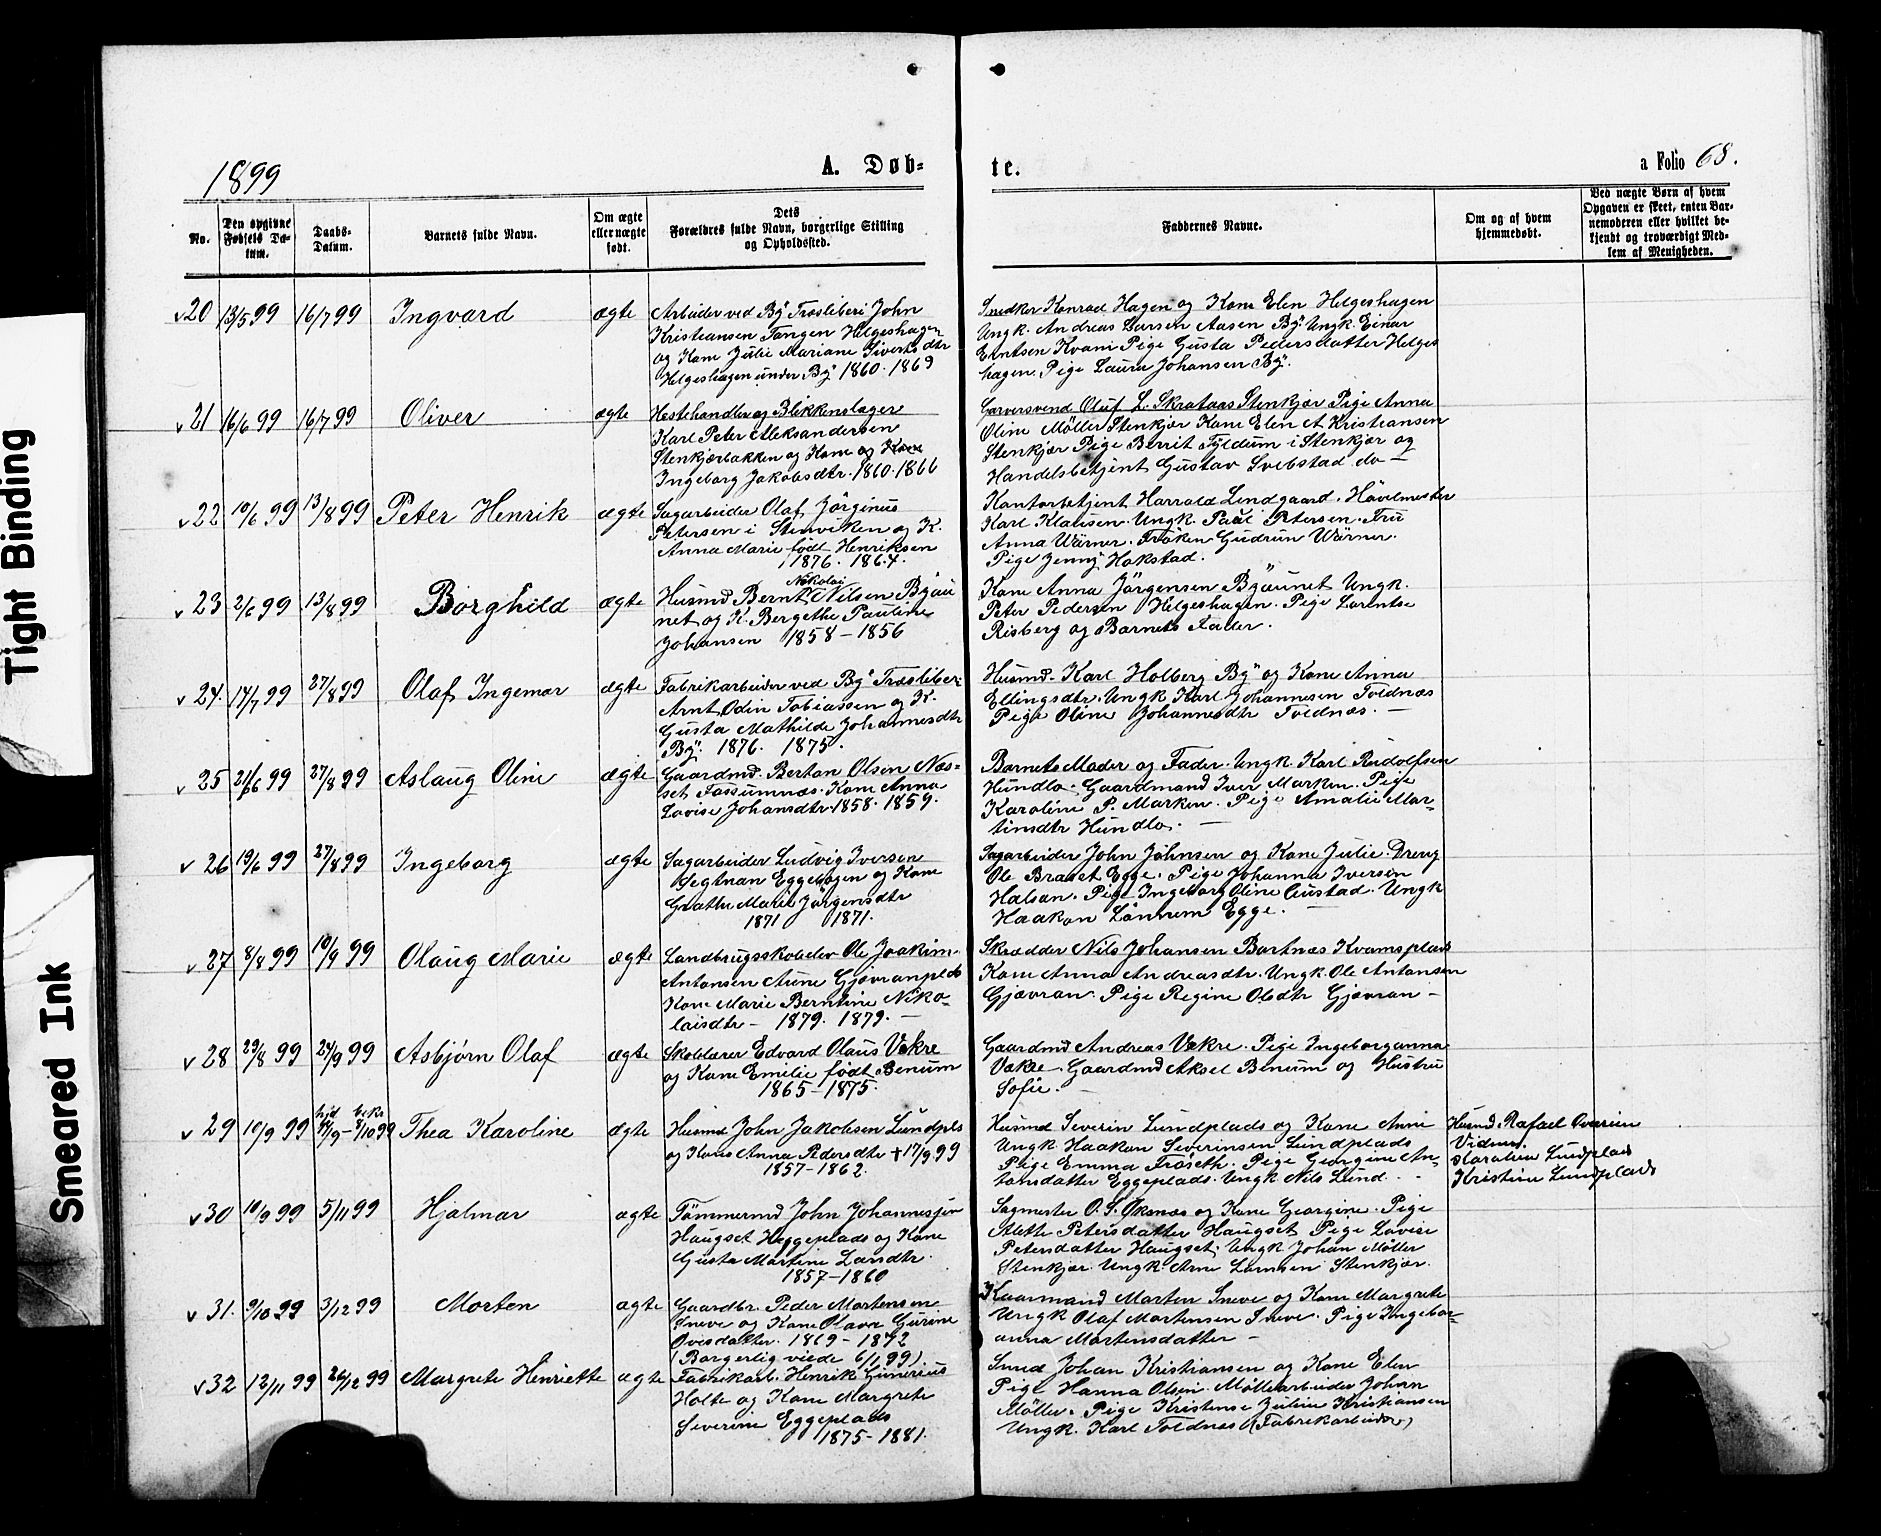 Tight Binding
Smeared Ink
1899
A. Døb-
te.
a Folio 68.
No.
Den opgivne Fødsels Datum.
Daabs-Datum.
Barnets fulde Navn.
Om ægte eller nægte født.
Dets Forældres fulde Navn, borgerlige Stilling og Opholdssted.
Faddernes Navne.
Om og af hvem hjemmedøbt.
Ved nægte Børn af hvem Opgaven er skeet, enten Barnemoderen eller hvilket bekjendt og troværdigt Medlem af Menigheden.
20 13/5 99 16/7 99 Ingvard ægte
Arbeider ved By Træsliberi John
Kristiansen Tangen Helgeshagen
og Kone Julie Mariane Sivertsdtr
Helgeshagen under By 1860. 1869
Snedker Konrad Hagen og Kone Elen Helgeshagen
Ungk. Andreas Larsen Aasen By. Ungk. Einar
Erntsen Kvam Pige Gusta Pedersdatter Helges
hagen. Pige Laura Johansen By.
21 16/6 99 16/7 99 Oliver ægte
Hestehandler og Blikkenslager
Karl Peter Aleksandersen
Stenkjærbakken og Kone og Kone
Ingeborg Jakobsdtr. 1860. 1866
Garversvend Oluf L. Skrataas Stenkjær Pige Anna
Oline Møller Stenkjær Kone Elen A Kristiansen
Stenkjær Pige Berrit Fyldum i Stenkjær og
Handelsbetjent Gustav Svebstad do —
22 10/6 99 13/8 99 Peter Henrik ægte
Sagarbeider Olaf Jørginus
Petersen i Stenviken og K.
Anna Marie født Henriksen
1876. 1864.
Kontorbetjent Harrald Lindgaard. Høvelmester
Karl Klausen. Ungk. Paul Petersen. Fru
Anna Wärner. Frøken Gudrun Wärner.
Pige Jenny Hokstad.
23 2/6 99 13/8 99 Borghild ægte
Husmd Bernt Nikolai Nilsen Byau
net og K. Bergethe Pauline
Johansen 1858 — 1856
Kone Anna Jørgensen Byaunet Ungk.
Peter Pedersen Helgeshagen. Pige Lorentse
Risberg og Barnets Fader.
24. 14/7 99 27/8 99 Olaf Ingemar ægte
Fabrikarbeider ved By Træsliberi
Arnt Odin Tobiassen og K.
Gusta Mathilde Johannesdtr
By. 1876. 1875.
Husmd. Karl Holberg By og Kone Anna
Ellingsdtr. Ungk Karl Johannesen Tvednæs
Pige Oline Johannesdtr Tvednæs. —
25 21/6 99 27/8 99 Aslaug Oline ægte
Gaardmd. Bertan Olsen Næs-
set Fossumnæs. Kone Anna
Lovise Johansdtr. 1858. 1859.
Barnets Moder og Fader. Ungk. Karl Rudolfsen
Hundlo. Gaardmand Iver Marken. Pige
Karoline P. Marken. Pige Amalie Mar-
tinsdtr Hundlo. —
26 19/6 99 27/8 99 Ingeborg ægte
Sagarbeider Ludvig Iversen
Hegtnan Eggebogen og Kone
Grethe Marie Jørgensdtr
1871 1871.
Sagarbeider John Johnsen og Kone Julie. Dreng
Ole Braset Egge. Pige Johanna Iversen
Halsan. Pige Ingeborg Oline Austad. Ungk
Haakon Lønnum Egge. —
27 8/8 99 10/9 99 Olaug Marie ægte
Landbrugsskoleelev Ole Joakim
Antonsen Aune Gjævranplds
Kone Marie Berntine Niko-
laisdtr — 1879. 1879. —
Skrædder Nils Johansen Bartnæs Kvamsplads
Kone Anna Andreasdtr. Ungk. Ole Antonsen
Gjævran. Pige Regine Olsdtr Gjævran —
28 29/8 99 24/9 99 Asbjørn Olaf ægte
Skolelærer Edvard Olaus Vekre
og Kone Emilie født Benum
1865 — 1875.
Gaardmd Andreas Vekre. Pige Ingeborganna
Vekre. Gaardmd Aksel Binum og Hustru
Sofie. —
29 10/9 99 hjd 14/9 — bekr 8/10 99 Thea Karoline ægte
Husmd John Jakobsen Lundpls
og Kone Anna Pedersdtr † 17/9 99
1857 — 1862.
Husmd Severin Lundplads og Kone Anne
Ungk Haakon Severinsen Lundplads
Pige Emma Frøseth. Pige Georgine An-
tonsdatter Eggeplads. Ungk Nils Lund.
Husmd. Rafael Ovarien
Vidnes.
Karoline Lundplads
Kristine Lundplads
30 10/9 99 5/11 99 Hjalmar ægte
Tømmermd John Johannesjun
Haugset Heggeplads og Kone
Gusta Martine Larsdtr.
1857 — 1860
Sagmester O. S. Øksnæs og Kone Georgine. Pige
Alette Petersdatter Haugset Pige Lovise
Petersdatter Haugset. Ungk Johan Møller
Stenkjær. Ungk. Arne Larnsen Stenkjær.
31. 9/10 99 3/12 99 Morten ægte
Gaardbr. Peder Mortensen
Sneve og Kone Olava Gurine
Ovesdatter. 1869 — 1872
(Borgerlig viede 6/1 99).
Kaarmand Morten Sneve og Kone Margrete
Ungk Olaf Mortensen Sneve. Pige Ingebor-
anna Mortensdatter —
32 12/11 99 26/12 99 Margrete Henriette ægte
Fabrikarb. Henrik Ginerius
Holte og Kone Margrete
Severine Eggeplads
1875 — 1881.
Smed Johan Kristiansen og Kone Elen
Pige Hanna Olsen. Møllearbeider Johan
Møller. Pige Kristense Juline Kristiansen
Ungk. Karl Toldnæs (Fabrikarbeider)